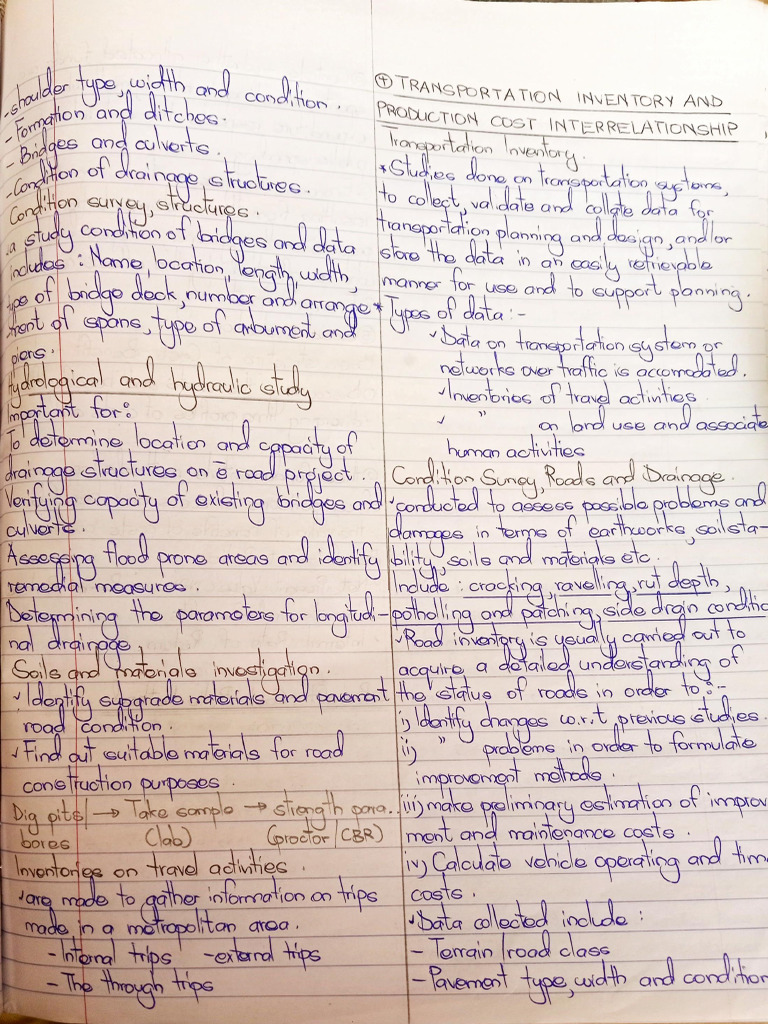 -shoulder type, width and condition.
-Formation and ditches.
- Bridges and culverts.
-Condition of drainage structures.
Condition survey, structures.
a study condition of bridges and data
includes : Name, location, length, width,
type of bridge deck, number and arrange
ment of spans, type of arbument and
piers.
Hydrological and hydraulic study
Important for:
To determine location and capacity of
drainage structures on ē road project.
Verifying capacity of existing bridges and
culverts.
Assessing flood prone areas and identify
remedial measures.
Determining the parameters for longitudi-
nal drainage
Soils and materials investigation.
✓Identify subgrade materials and pavement
road condition.
✓Find out suitable materials for road
construction purposes.
Dig pits/ → Take sample → strength para..
bores (lab) (proctor/CBR)
Inventories on travel activities.
✓are made to gather information on trips
made in a metropolitan area.
-Internal trips -external trips
- The through trips
④ TRANSPORTATION INVENTORY AND
PRODUCTION COST INTERRELATIONSHIP
Transportation Inventory.
*Studies done on transportation systems,
to collect, validate and collate data for
transportation planning and design, and/or
store the data in an easily retrievable
manner for use and to support planning.
*Types of data :-
✓Data on transportation system or
networks over traffic is accomodated.
✓Inventories of travel activities
✓ " on land use and associate
human activities
Condition Survey, Roads and Drainage.
✓conducted to assess possible problems and
damages in terms of earthworks, soil sta-
bility, soils and materials etc.
Include : cracking, ravelling, rut depth,
potholling and patching, side drain conditio
✓Road inventory is usually carried out to
acquire a detailed understanding of
the status of roads in order to :-
i) Identify changes w.r.t previous studies.
ii) " problems in order to formulate
improvement methods.
iii) make preliminary estimation of improv
ment and maintenance costs.
iv) Calculate vehicle operating and time
costs.
✓Data collected include :
- Terrain /road class
- Pavement type, width and condition